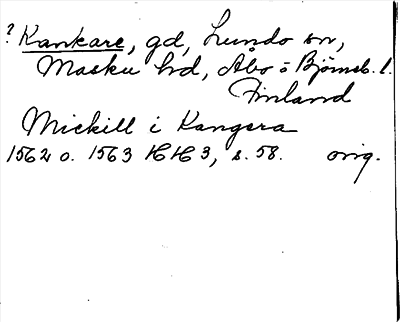 ? Kankare, gd, Lundo sn,
Masku hd, Åbo o Björneb. l.
Finland
Mickill i Kangera
1562 o. 1563 HH 3, s. 58. orig.